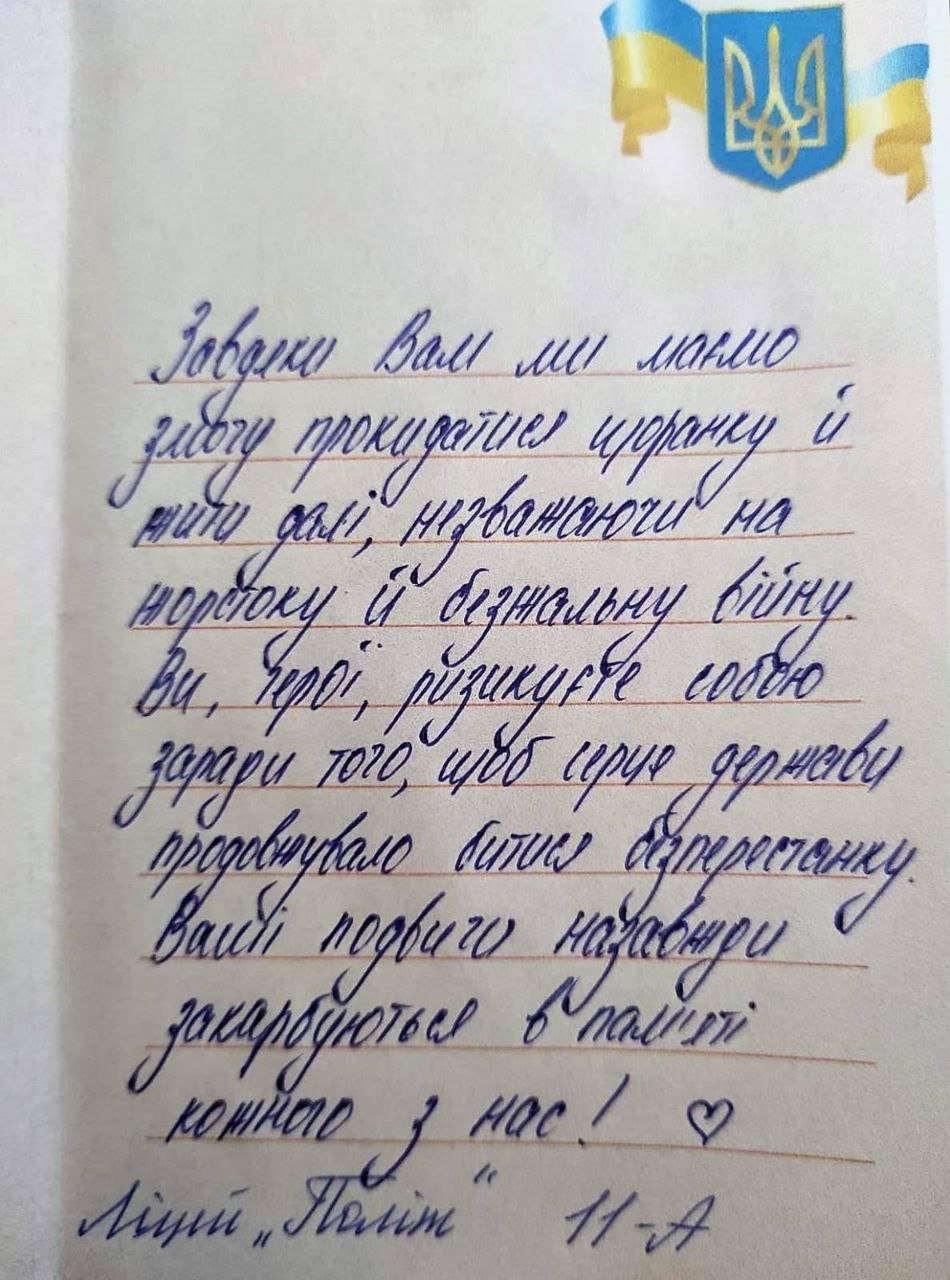 Завдяки Вам ми маємо
змогу прокидатися щоранку й
жити далі, незважаючи на
жорстоку й безжальну війну.
Ви, герої, ризикуєте собою
заради того, щоб серце держави
продовжувало битися безперестанку.
Ваші подвиги назавжди
закарбуються в пам'яті
кожного з нас! ♡
Ліцей „Політ" 11-А